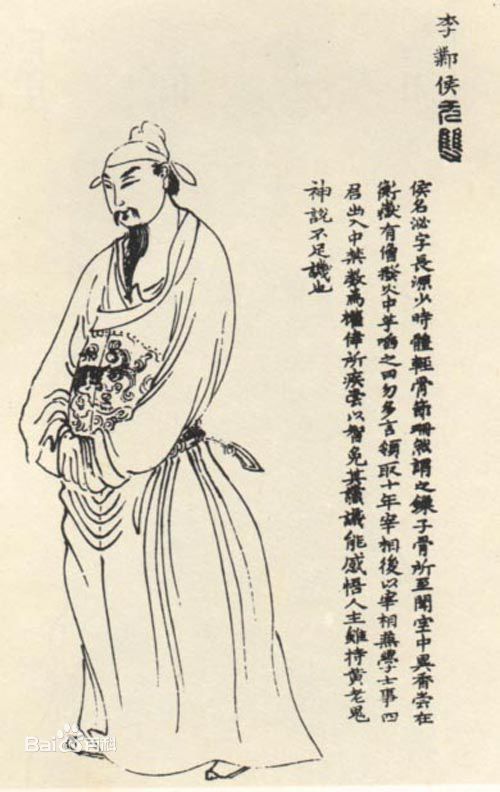 李鄴侯
侯名泌字長源少時體輕骨節珊然謂之鎖子骨所至聞室中異香嘗在
衡嶽有僧撥火中芋啗之曰勿多言領取十年宰相後以宰相兼學士事四
君出入中禁數為權倖所疾嘗以智免其讜議能感悟人主雖持黃老鬼
神說不足譏也
Baidu百科